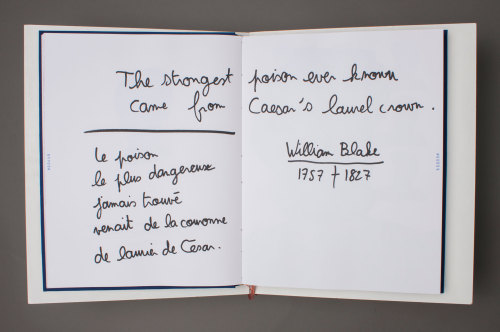 The strongest poison ever known
came from Caesar's laurel crown.
William Blake
1757 † 1827
Le poison
le plus dangereux
jamais trouvé
venait de la couronne
de laurier de César.